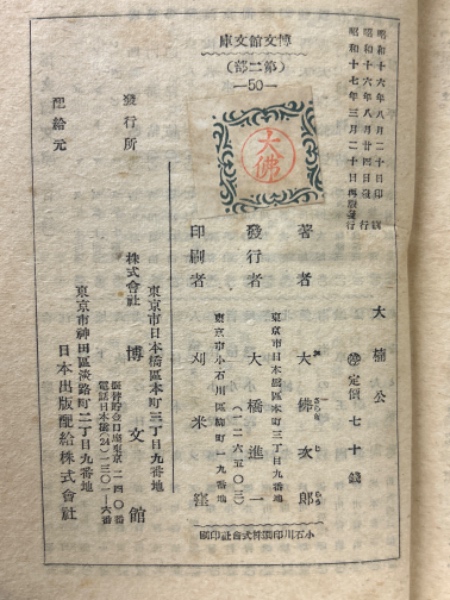 昭和十六年八月二十日印刷
昭和十六年八月廿四日發行
昭和十七年三月二十日再版發行
博文館文庫
(第二部)
—50—
大佛
大楠公
定價七十錢
著者 大佛次郎
東京市日本橋區本町三丁目九番地
發行者 大橋進一
(一二六五〇三)
東京市小石川區 町一九番地
印刷者 刈米窪
小石川印刷株式會社印刷
發行所
東京市日本橋區本町三丁目九番地
株式會社 博文館
振替貯金口座東京二四〇番
電話日本橋(24)一三〇一—六番
配給元
東京市神田區淡路町二丁目九番地
日本出版配給株式會社